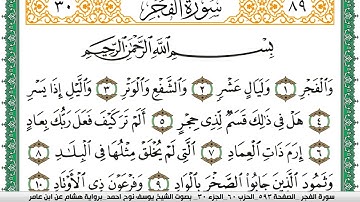 ٣٠ سُورَةُ الفَجْرِ ٨٩
بِسْمِ اللَّهِ الرَّحْمَٰنِ الرَّحِيمِ
وَالْفَجْرِ ١ وَلَيَالٍ عَشْرٍ ٢ وَالشَّفْعِ وَالْوَتْرِ ٣ وَالَّيْلِ إِذَا يَسْرِ
٤ هَلْ فِي ذَٰلِكَ قَسَمٌ لِّذِي حِجْرٍ ٥ أَلَمْ تَرَ كَيْفَ فَعَلَ رَبُّكَ بِعَادٍ
٦ إِرَمَ ذَاتِ الْعِمَادِ ٧ الَّتِي لَمْ يُخْلَقْ مِثْلُهَا فِي الْبِلَادِ ٨
وَثَمُودَ الَّذِينَ جَابُوا الصَّخْرَ بِالْوَادِ ٩ وَفِرْعَوْنَ ذِي الْأَوْتَادِ ١٠
سورة الفجر _ الصفحة ٥٩٣ _ الحزب ٦٠ _ الجزء ٣٠ _ بصوت الشيخ يوسف نوح احمد _ برواية هشام عن ابن عامر